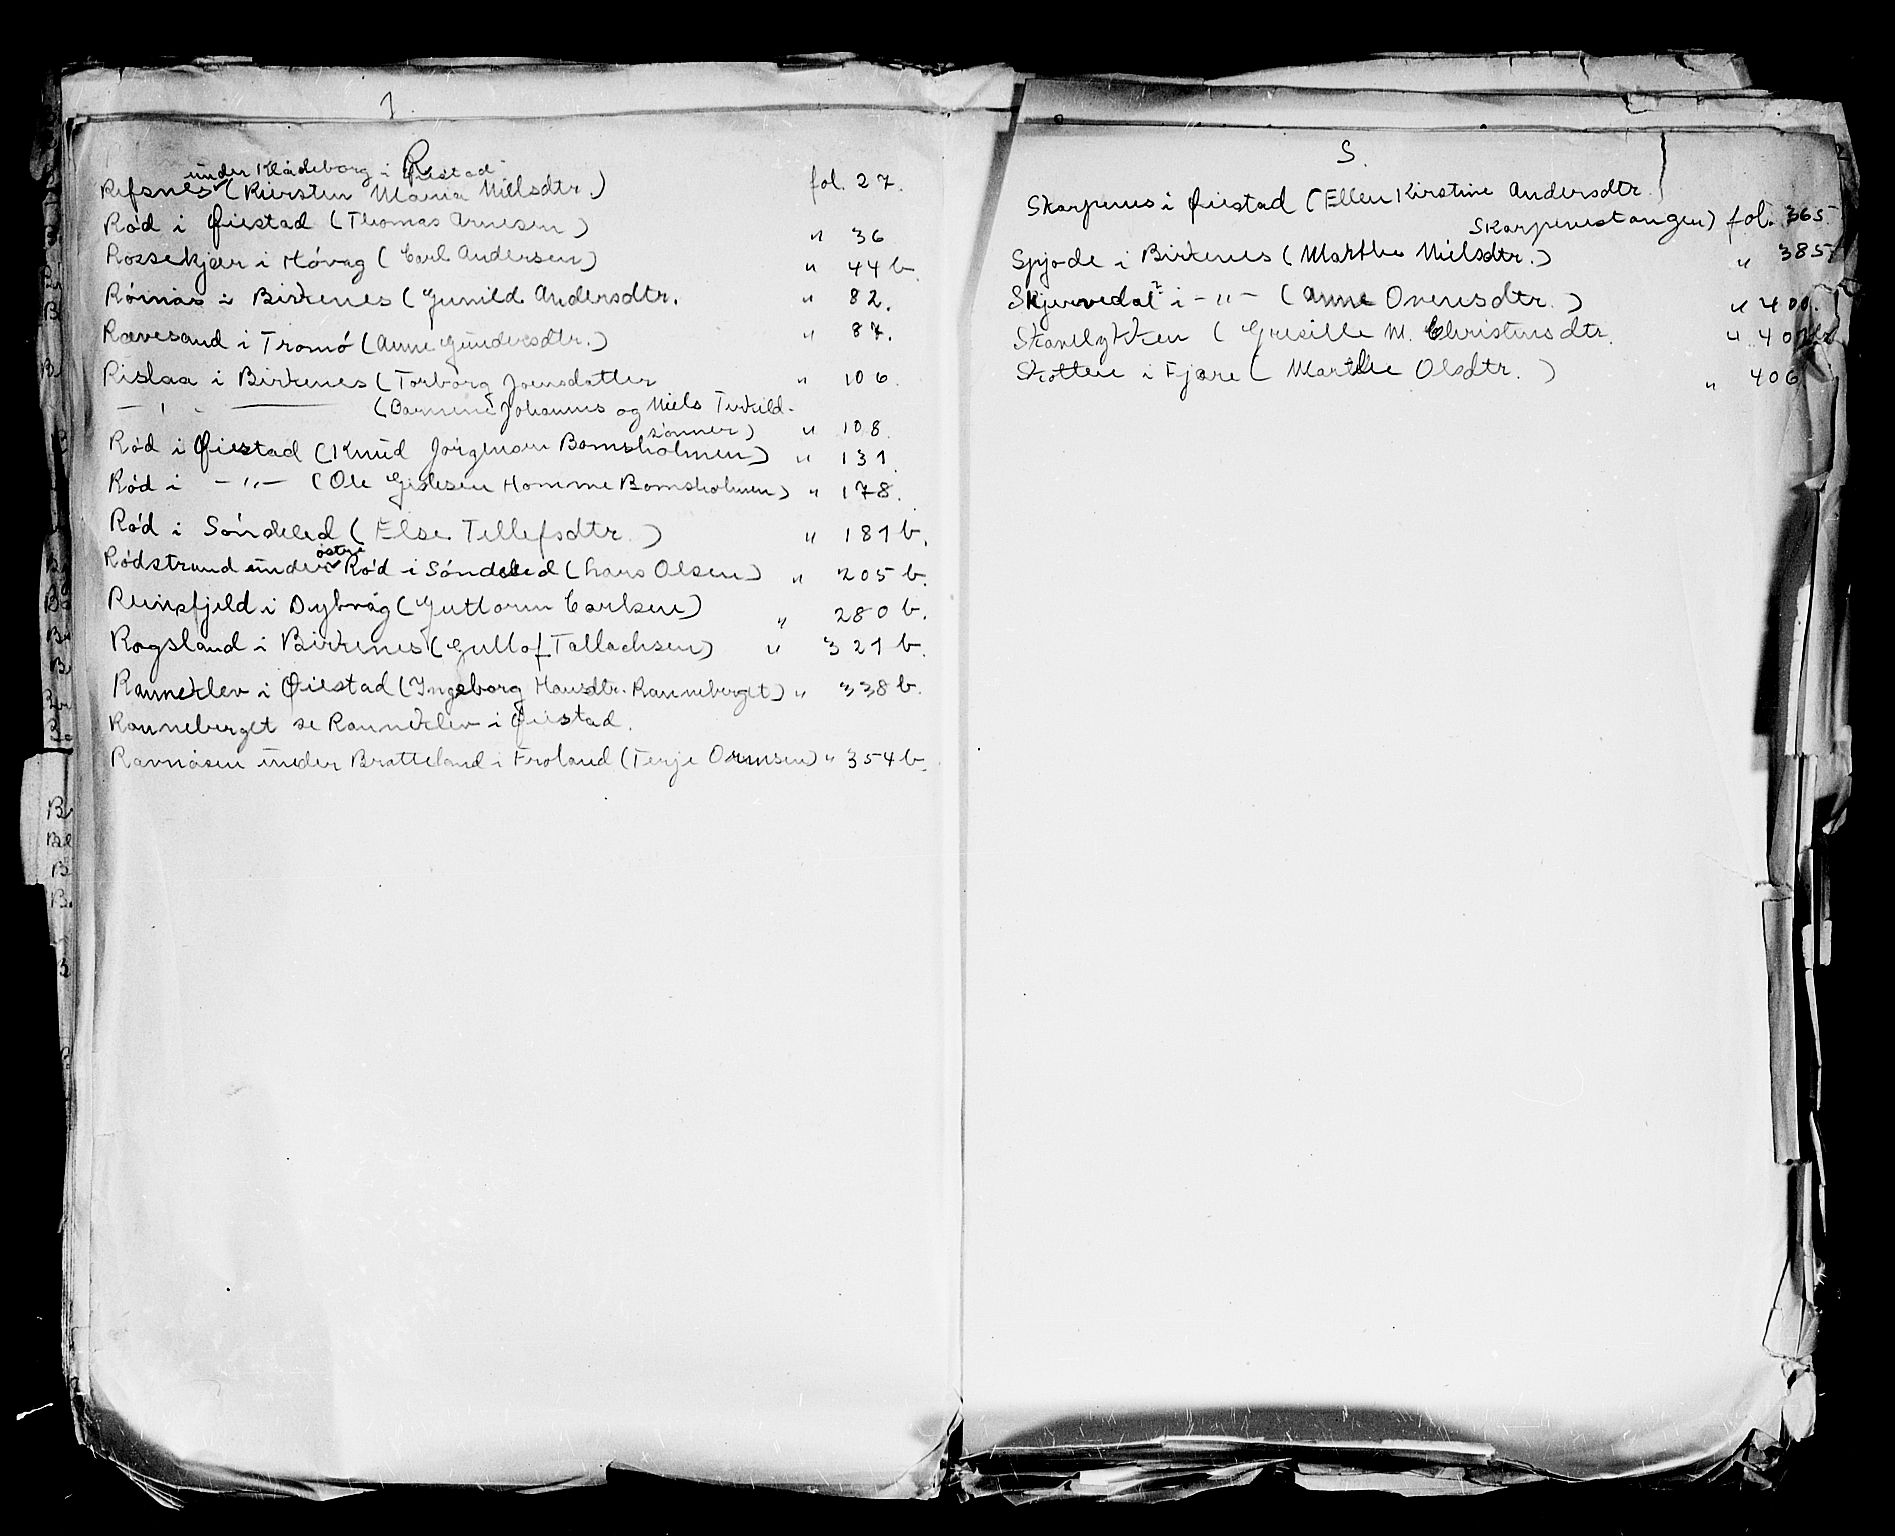 R
under Klådeborg i Øiestad
Refsnes (Kirsten Maria Nielsdtr.) fol. 27.
Rød i Øiestad (Thomas Arnesen) " 36
Rossekjær i Høvåg (Carl Andersen) " 44 b.
Rømås i Birkenes (Gunild Andersdtr. " 82.
Rævesand i Tromø (Anne Gundersdtr.) " 87.
Rislaa i Birkenes (Torborg Joensdatter " 106.
— " — (Barnene Johannes og Niels Terkild-
sønner) " 108.
Rød i Øiestad (Knud Jørgensen Bomsholmen) " 131.
Rød i — " — (Ole Gislesen Homme Bomsholmen) " 178.
Rød i Søndeled (Else Tellefsdtr.) " 181 b.
østre
Rødstrand under Rød i Søndeled (Lars Olsen) " 205 b.
Reinsfjeld i Dybvåg (Guttorm Carlsen) " 280 b.
Rogsland i Birkenes (Gullof Tallachsen) " 321 b.
Ranneklev i Øiestad (Ingeborg Hansdtr. Ranneberget) " 338 b.
Ranneberget se Ranneklev i Øiestad.
Ravnåsen under Bratteland i Froland (Terje Ormsen) " 354 b.
S.
Skarpnes i Øiestad (Ellen Kirstine Andersdtr.
Skarpnestangen) fol. 365
Spjode i Birkenes (Marthe Nielsdtr.) " 385
Skjervedal? i — " — (Anne Ovensdtr.) " 400.
Skavlykken (Gresille M. Christensdtr. " 401
Skotten i Fjære (Marthe Olsdtr.) " 406